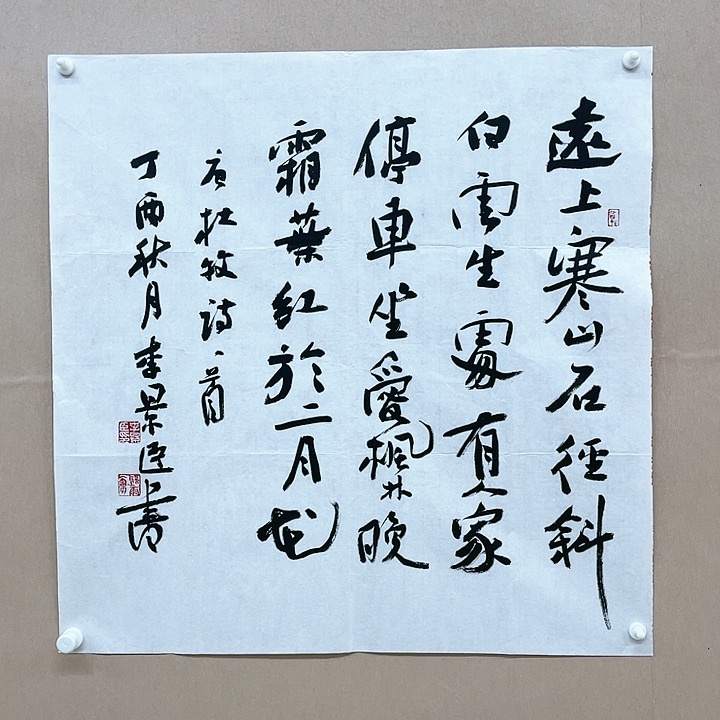 遠上寒山石徑斜
白雲生處有人家
停車坐愛楓林晚
霜葉紅於二月花
唐杜牧詩一首
丁酉秋月李景臣書